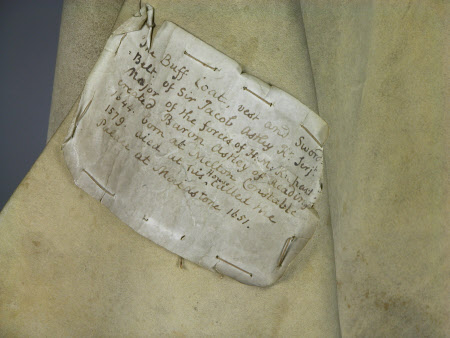 The Buff Coat, vest and Sword
Belt of Sir Jacob Astley Kt. Serjt.
Major of the forces of
created Baron Astley of Reading
1644. born at Melton Constable
1579. died at his house called the
at Maidstone 1651.